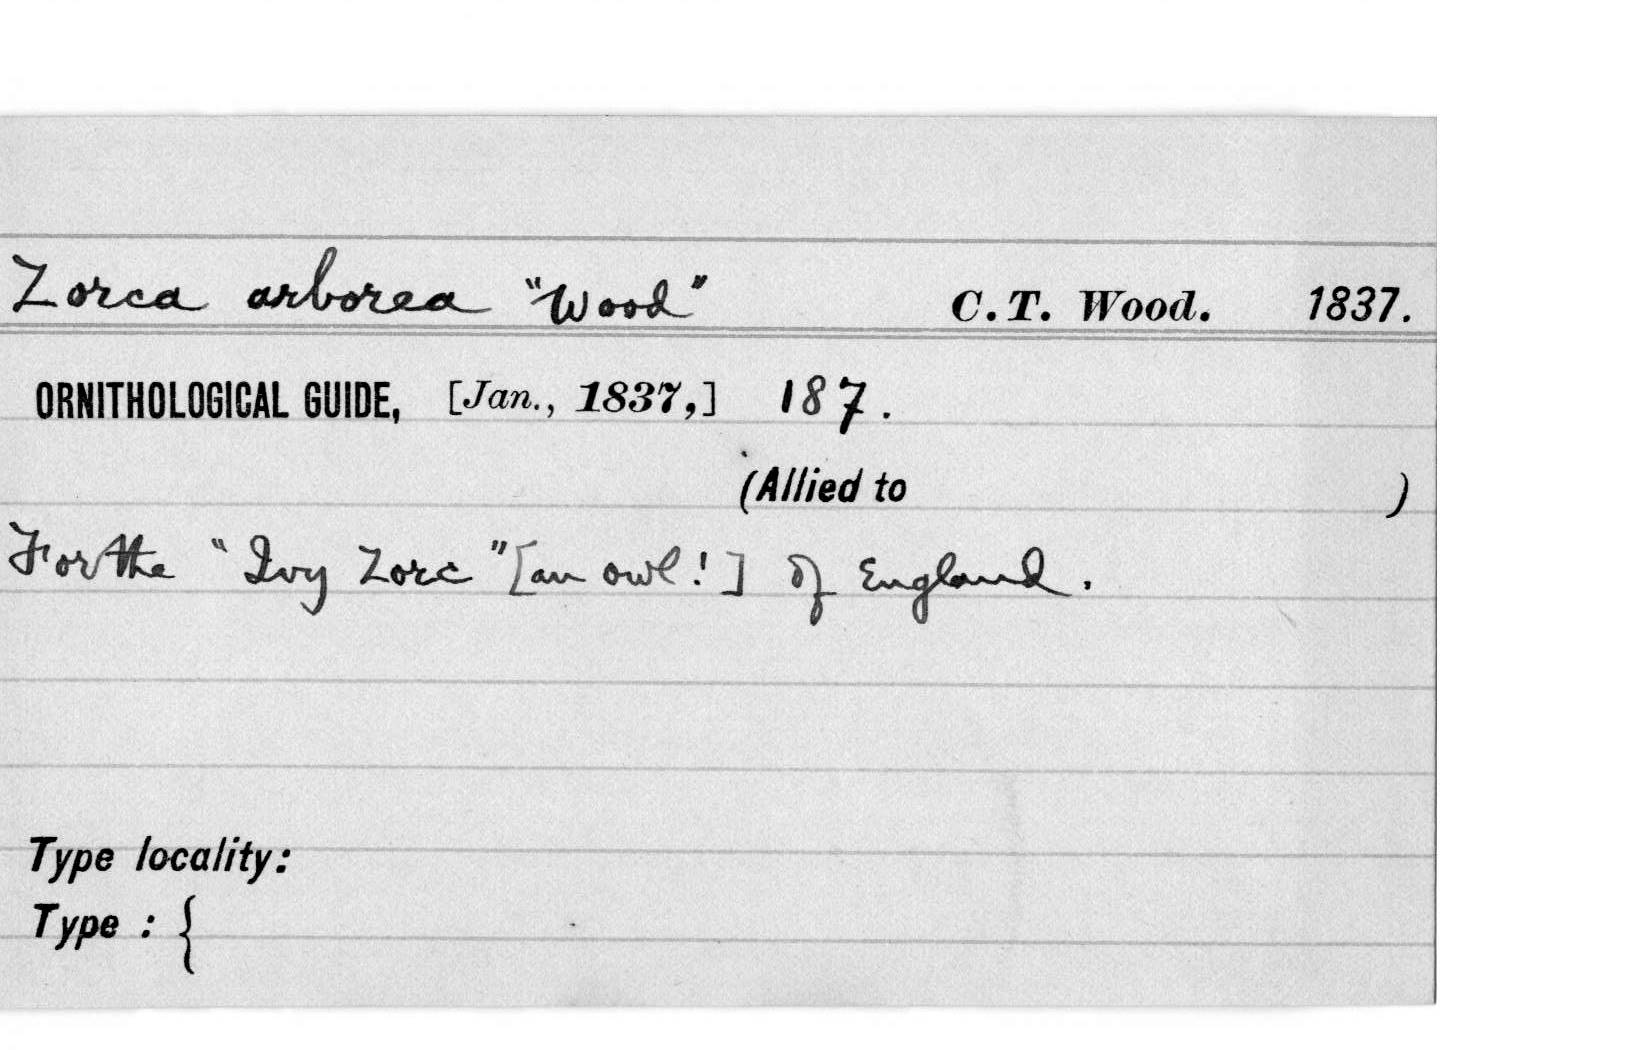 Zorca arborea "Wood" C.T. Wood. 1837.
ORNITHOLOGICAL GUIDE, [Jan., 1837,] 187.
(Allied to )
For the "Ivy Zorc" [an owl!] of England.
Type locality:
Type : {